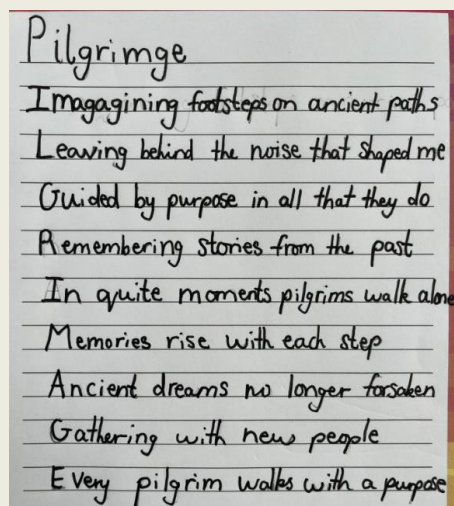 Pilgrimge
Imagagining footsteps on ancient paths
Leaving behind the noise that shaped me
Guided by purpose in all that they do
Remembering stories from the past
In quite moments pilgrims walk alone
Memories rise with each step
Ancient dreams no longer forsaken
Gathering with new people
Every pilgrim walks with a purpose